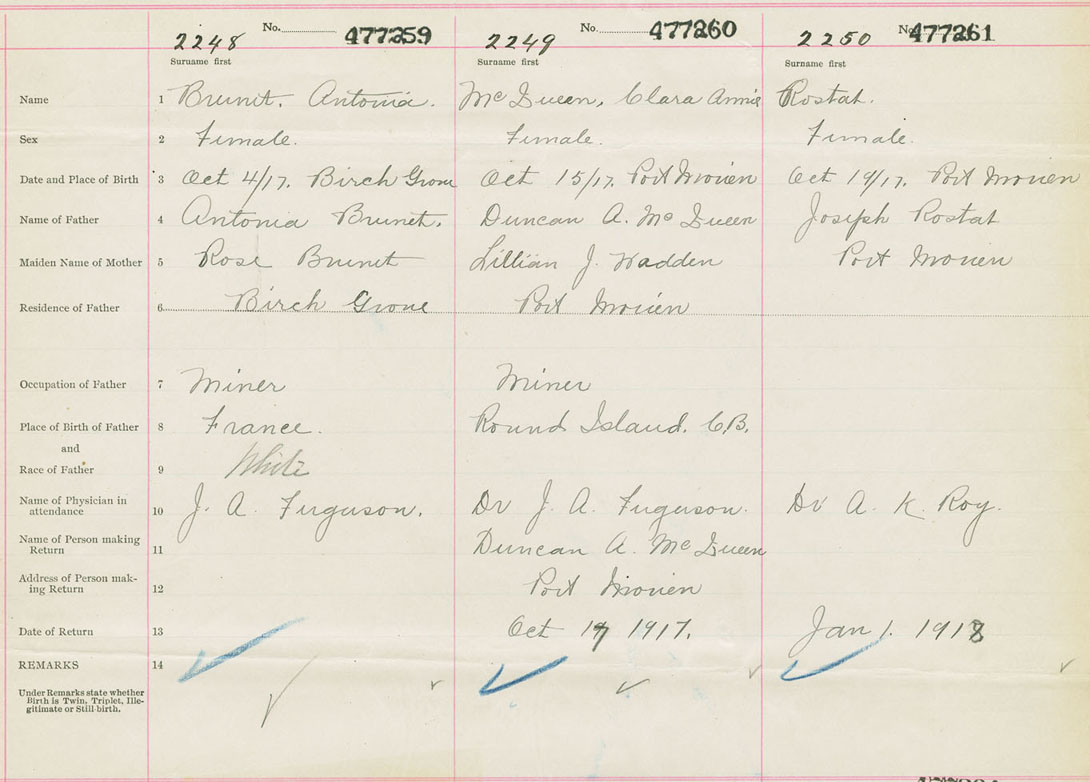 No. 477259 No. 477260 No. 477261
2248 2249 2250
Surname first Surname first Surname first
Name 1 Brunet, Antonia. McQueen, Clara Annie Rostat.
Sex 2 Female. Female. Female.
Date and Place of Birth 3 Oct 4/17. Birch Grove Oct 15/17. Port Morien Oct 19/17. Port Morien
Name of Father 4 Antonia Brunet. Duncan A. McQueen Joseph Rostat
Maiden Name of Mother 5 Rose Brunet Lillian J. Wadden Port Morien
Residence of Father 6 Birch Grove Port Morien
Occupation of Father 7 Miner Miner
Place of Birth of Father 8 France. Round Island. C.B.
and
Race of Father 9 White
Name of Physician in
attendance 10 J. A. Ferguson. Dr J. A. Ferguson. Dr A. K. Roy.
Name of Person making
Return 11 Duncan A. McQueen
Address of Person mak-
ing Return 12 Port Morien
Date of Return 13 Oct 1917. Jan 1. 1918
REMARKS 14
Under Remarks state whether
Birth is Twin, Triplet, Ille-
gitimate or Still-birth.